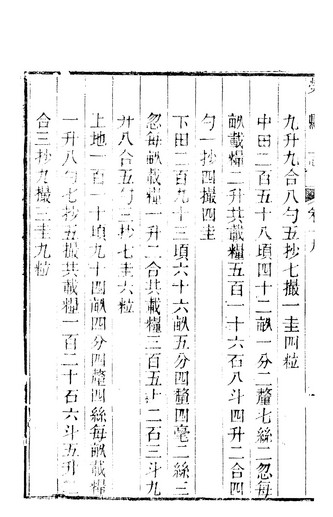 縣志 卷九
九升九合八勺五抄七撮一圭四粒
中田二百五十八頃四十二畝一分二釐七絲二忽每
畝載糧二升共載糧五百一十六石八斗四升二合四
勺一抄四撮四圭
下田二百九十三頃六十六畝五分四釐四毫二絲三
忽每畝載糧一升二合共載糧三百五十二石三斗九
升八合五勺三抄七圭六粒
上地一百一十頃九十四畝四分四釐四絲每畝載糧
一升八勺七抄五撮共載糧一百二十石六斗五升二
合三抄九撮三圭九粒